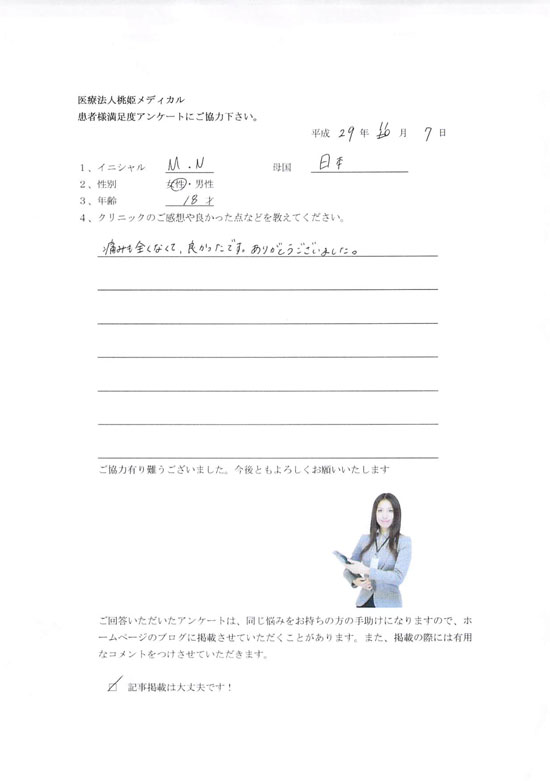 医療法人桃姫メディカル
患者様満足度アンケートにご協力下さい。
平成 29 年 6 月 7 日
1、イニシャル M.N 母国 日本
2、性別 女性・男性
3、年齢 18才
4、クリニックのご感想や良かった点などを教えてください。
痛みも全くなくて、良かったです。ありがとうございました。
ご協力有り難うございました。今後ともよろしくお願いいたします
ご回答いただいたアンケートは、同じ悩みをお持ちの方の手助けになりますので、ホ
ームページのブログに掲載させていただくことがあります。また、掲載の際には有用
なコメントをつけさせていただきます。
☑ 記事掲載は大丈夫です！